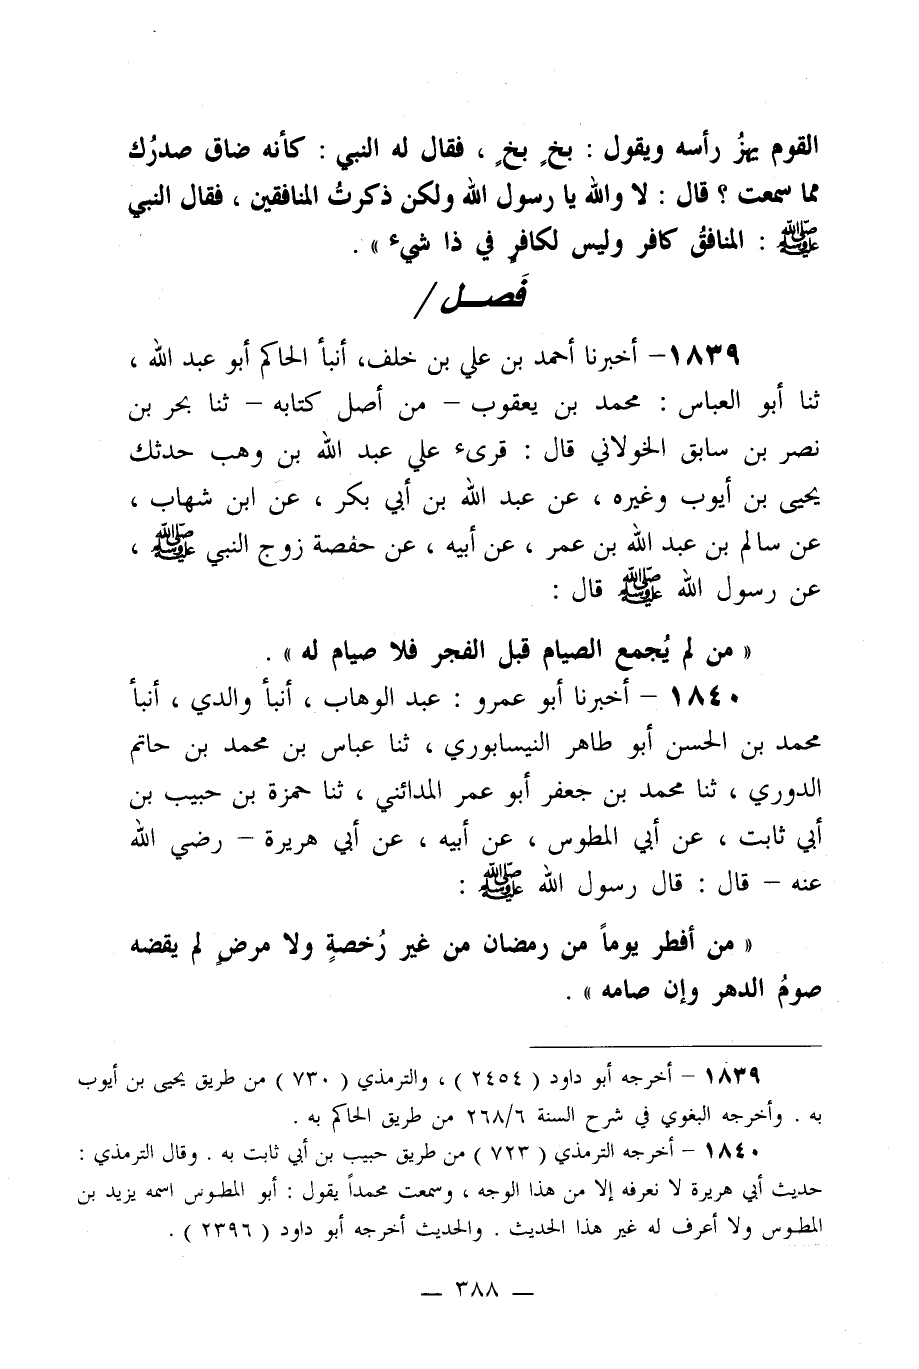 القوم يهزُ رأسه ويقول : بخٍ بخٍ ، فقال له النبي : كأنه ضاق صدرُك
مما سمعت ؟ قال : لا والله يا رسول الله ولكن ذكرتُ المنافقين ، فقال النبي
ﷺ : المنافقُ كافر وليس لكافرٍ في ذا شيء » .
فَصـل /
١٨٣٩ – أخبرنا أحمد بن علي بن خلف، أنبأ الحاكم أبو عبد الله ،
ثنا أبو العباس : محمد بن يعقوب – من أصل كتابه – ثنا بحر بن
نصر بن سابق الخولاني قال : قرىء علي عبد الله بن وهب حدثك
يحيى بن أيوب وغيره ، عن عبد الله بن أبي بكر ، عن ابن شهاب ،
عن سالم بن عبد الله بن عمر ، عن أبيه ، عن حفصة زوج النبي ﷺ ،
عن رسول الله ﷺ قال :
« من لم يُجمع الصيام قبل الفجر فلا صيام له » .
١٨٤٠ – أخبرنا أبو عمرو : عبد الوهاب ، أنبأ والدي ، أنبأ
محمد بن الحسن أبو طاهر النيسابوري ، ثنا عباس بن محمد بن حاتم
الدوري ، ثنا محمد بن جعفر أبو عمر المدائني ، ثنا حمزة بن حبيب بن
أبي ثابت ، عن أبي المطوس ، عن أبيه ، عن أبي هريرة – رضي الله
عنه – قال : قال رسول الله ﷺ :
« من أفطر يوماً من رمضان من غير رُخصةٍ ولا مرضٍ لم يقضه
صومُ الدهر وإن صامه » .
١٨٣٩ – أخرجه أبو داود ( ٢٤٥٤ ) ، والترمذي ( ٧٣٠ ) من طريق يحيى بن أيوب
به . وأخرجه البغوي في شرح السنة ٢٦٨/٦ من طريق الحاكم به .
١٨٤٠ – أخرجه الترمذي ( ٧٢٣ ) من طريق حبيب بن أبي ثابت به . وقال الترمذي :
حديث أبي هريرة لا نعرفه إلا من هذا الوجه ، وسمعت محمداً يقول : أبو المطوس اسمه يزيد بن
المطوس ولا أعرف له غير هذا الحديث . والحديث أخرجه أبو داود ( ٢٣٩٦ ) .
— ٣٨٨ —